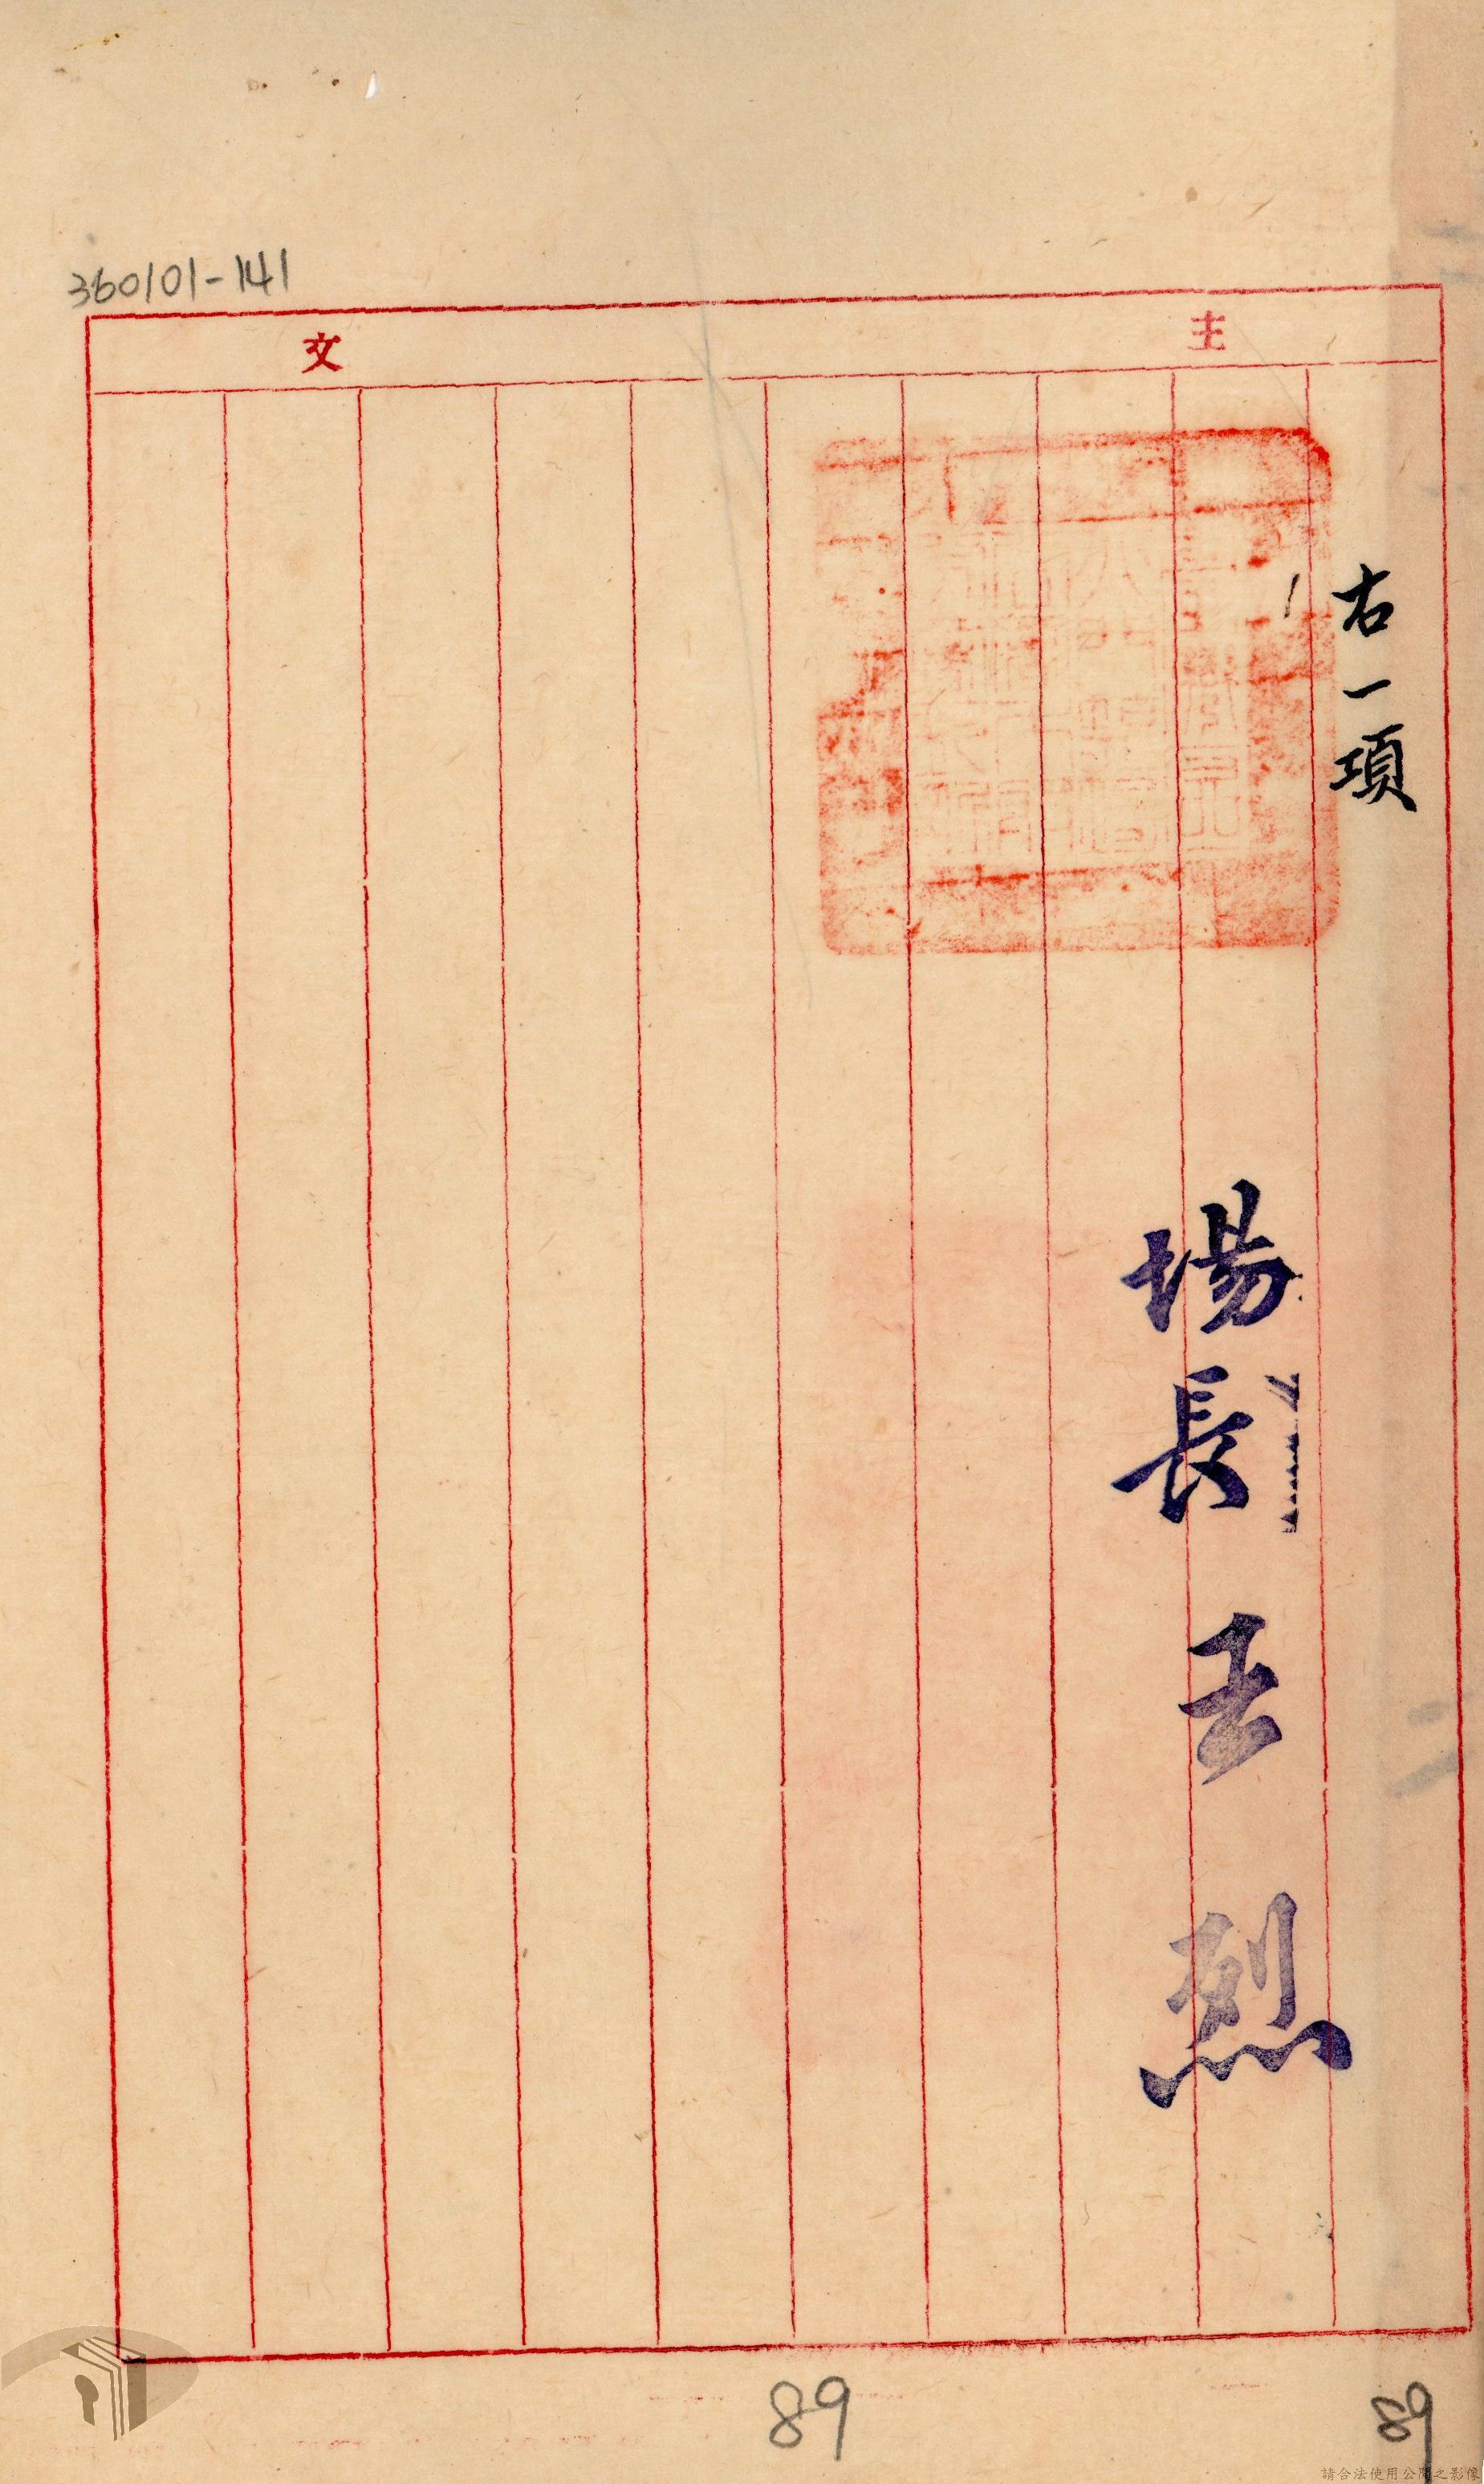 360101-141
主文
右一項
場長王烈
89
89
請合法使用公開之影像